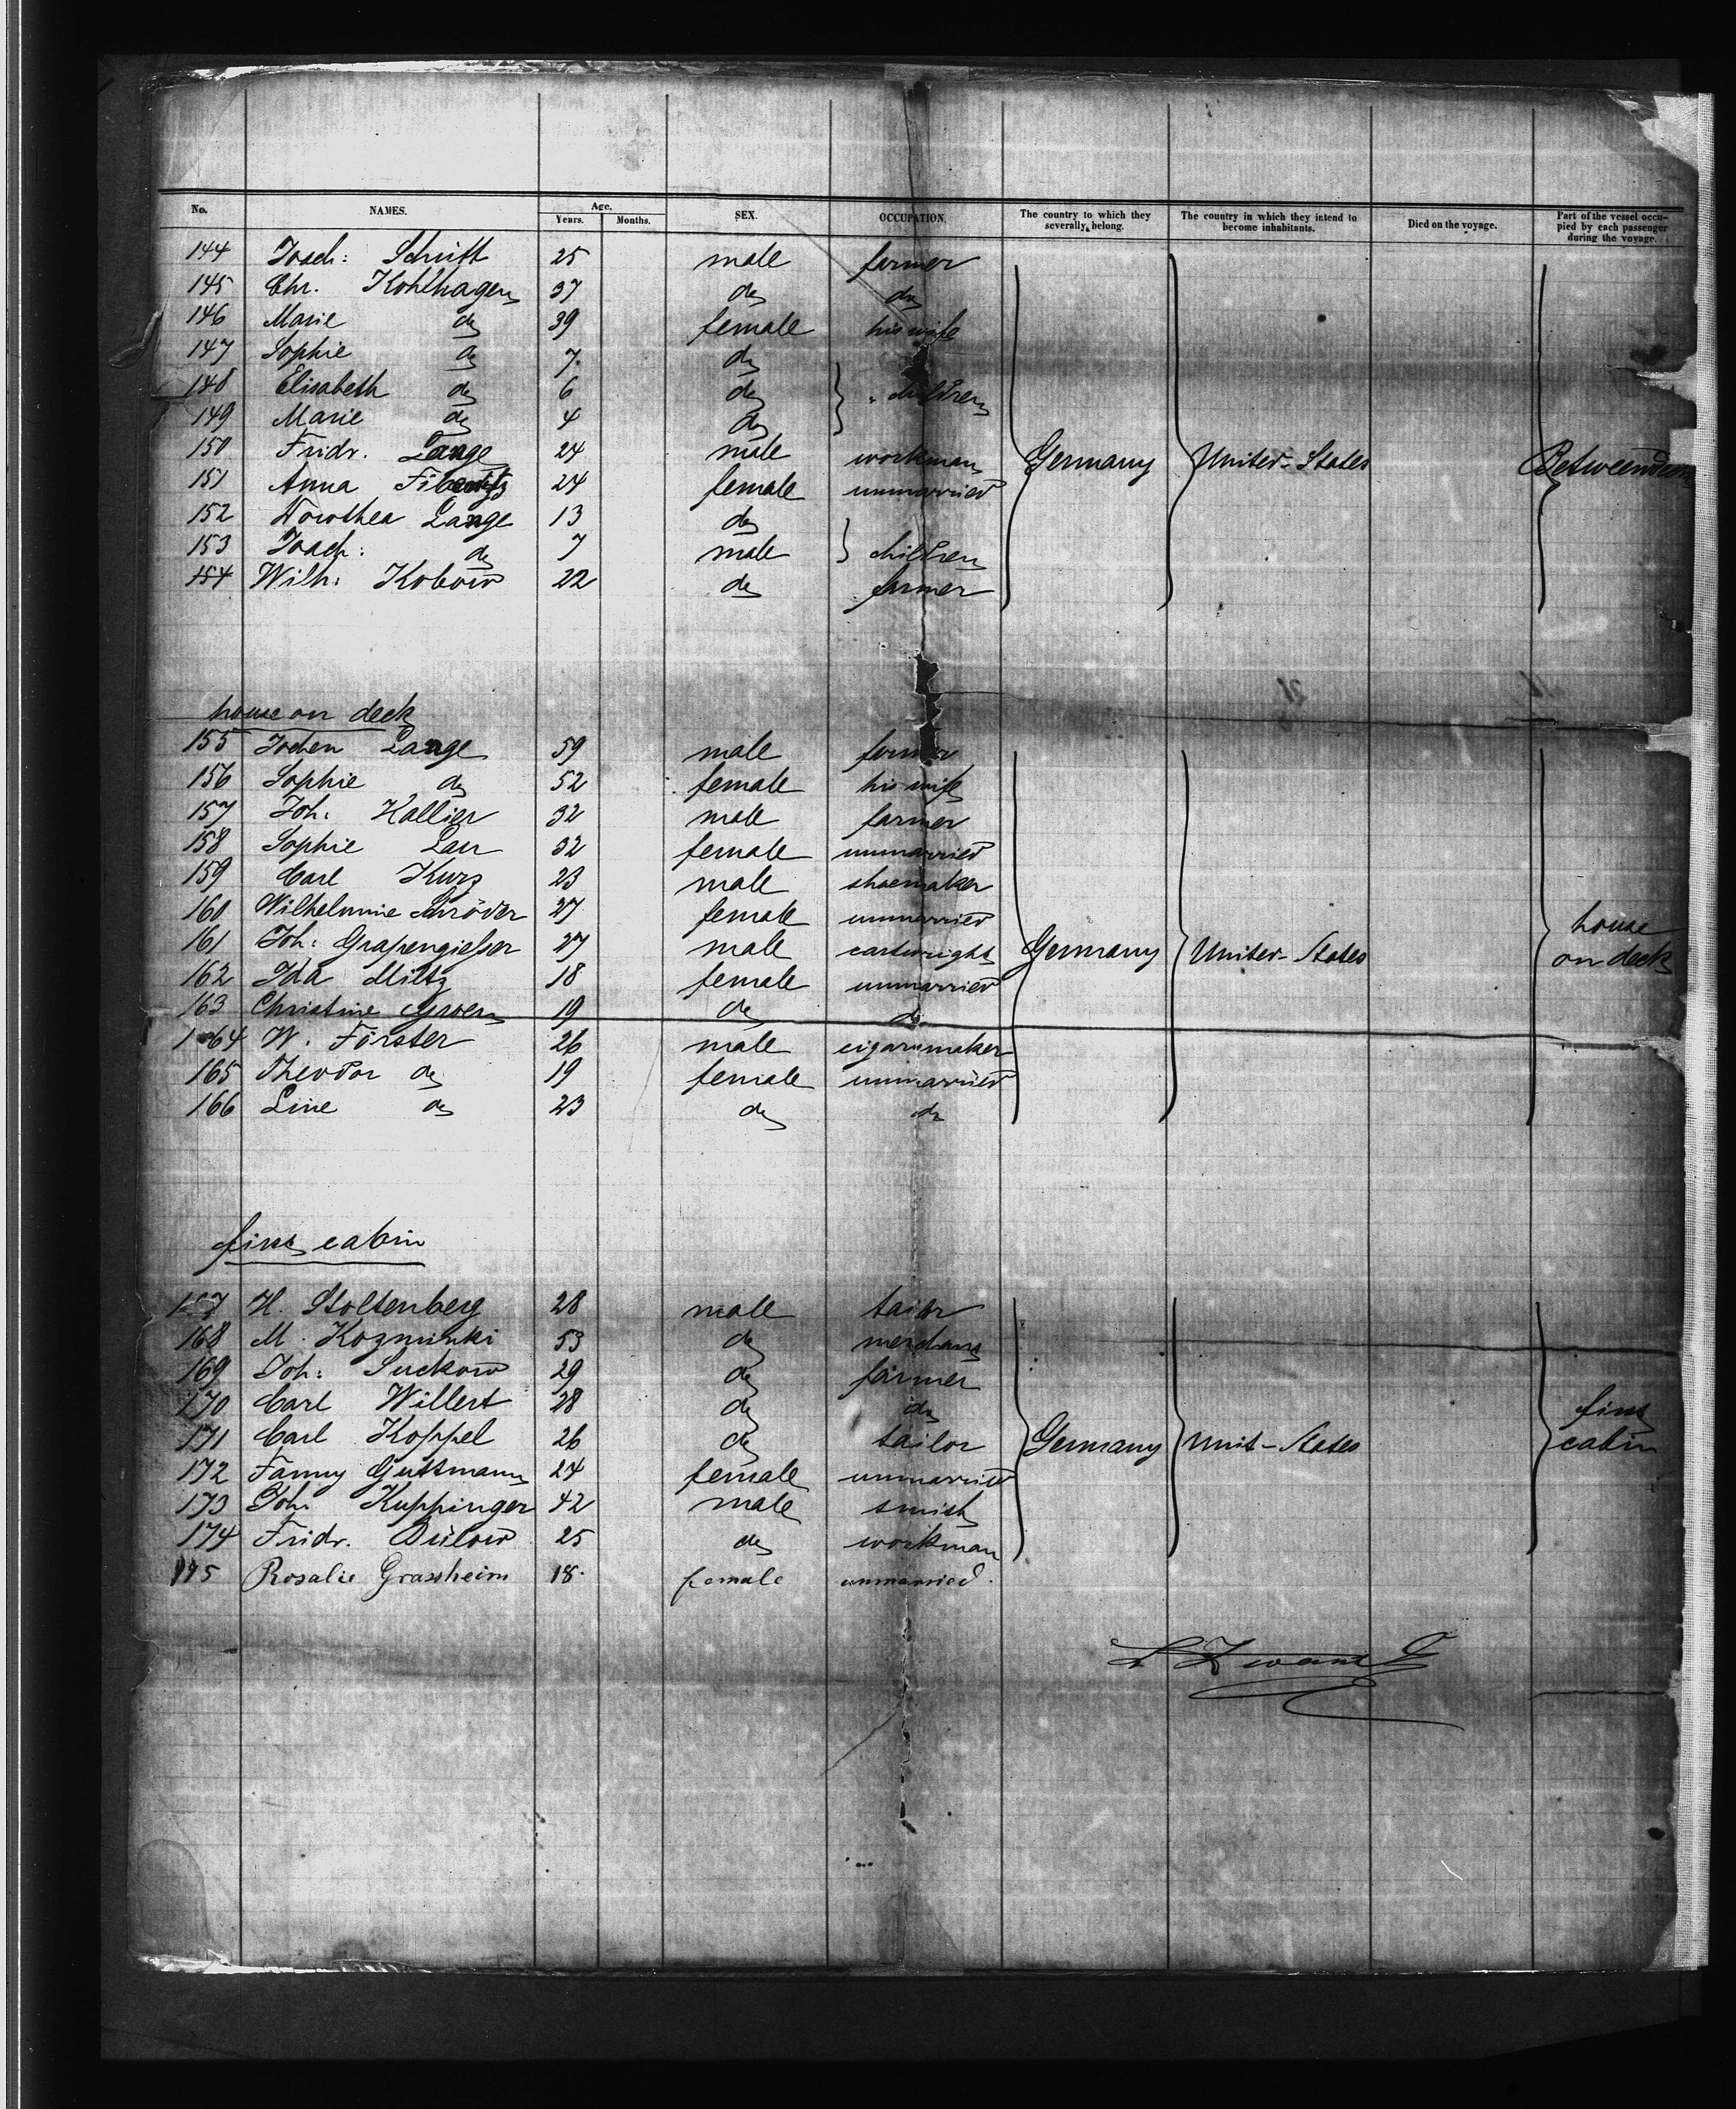 No. NAMES. Age. Years. Months. SEX. OCCUPATION. The country to which they severally belong. The country in which they intend to become inhabitants. Died on the voyage. Part of the vessel occupied by each passenger during the voyage.
144 Joach: Schutt 25 male farmer
145 Chr. Kohlhagen 37 do do
146 Marie do 39 female his wife
147 Sophie do 7 do
148 Elisabeth do 6 do children
149 Marie do 4 do
150 Fridr. Lange 24 male workman Germany United-States Betweendeck
151 Anna 24 female unmarried
152 Dorothea Lange 13 do
153 Joach: do 7 male children
154 Wilh: Kobow 22 do farmer
house on deck
155 Jochen Lange 59 male farmer
156 Sophie do 52 female his wife
157 Joh: Hallier 32 male farmer
158 Sophie Lau 32 female unmarried
159 Carl Kurz 23 male shoemaker
160 Wilhelmine Schröder 27 female unmarried
161 Joh: Grapengiesser 27 male cartwright Germany United-States house on deck
162 Ida Miltz 18 female unmarried
163 Christine Groen 19 do do
164 W. Förster 26 male cigarmaker
165 Theodor do 19 female unmarried
166 Line do 23 do do
first cabin
167 H. Stoltenberg 28 male tailor
168 M. Kozminski 53 do merchant
169 Joh: Suckow 29 do farmer
170 Carl Willert 28 do do
171 Carl Koppel 26 do tailor Germany Unit-States first cabin
172 Fanny Guttmann 24 female unmarried
173 Joh: Kuppinger 42 male smith
174 Fridr. Bülow 25 do workman
175 Rosalie Grassheim 18 female unmarried